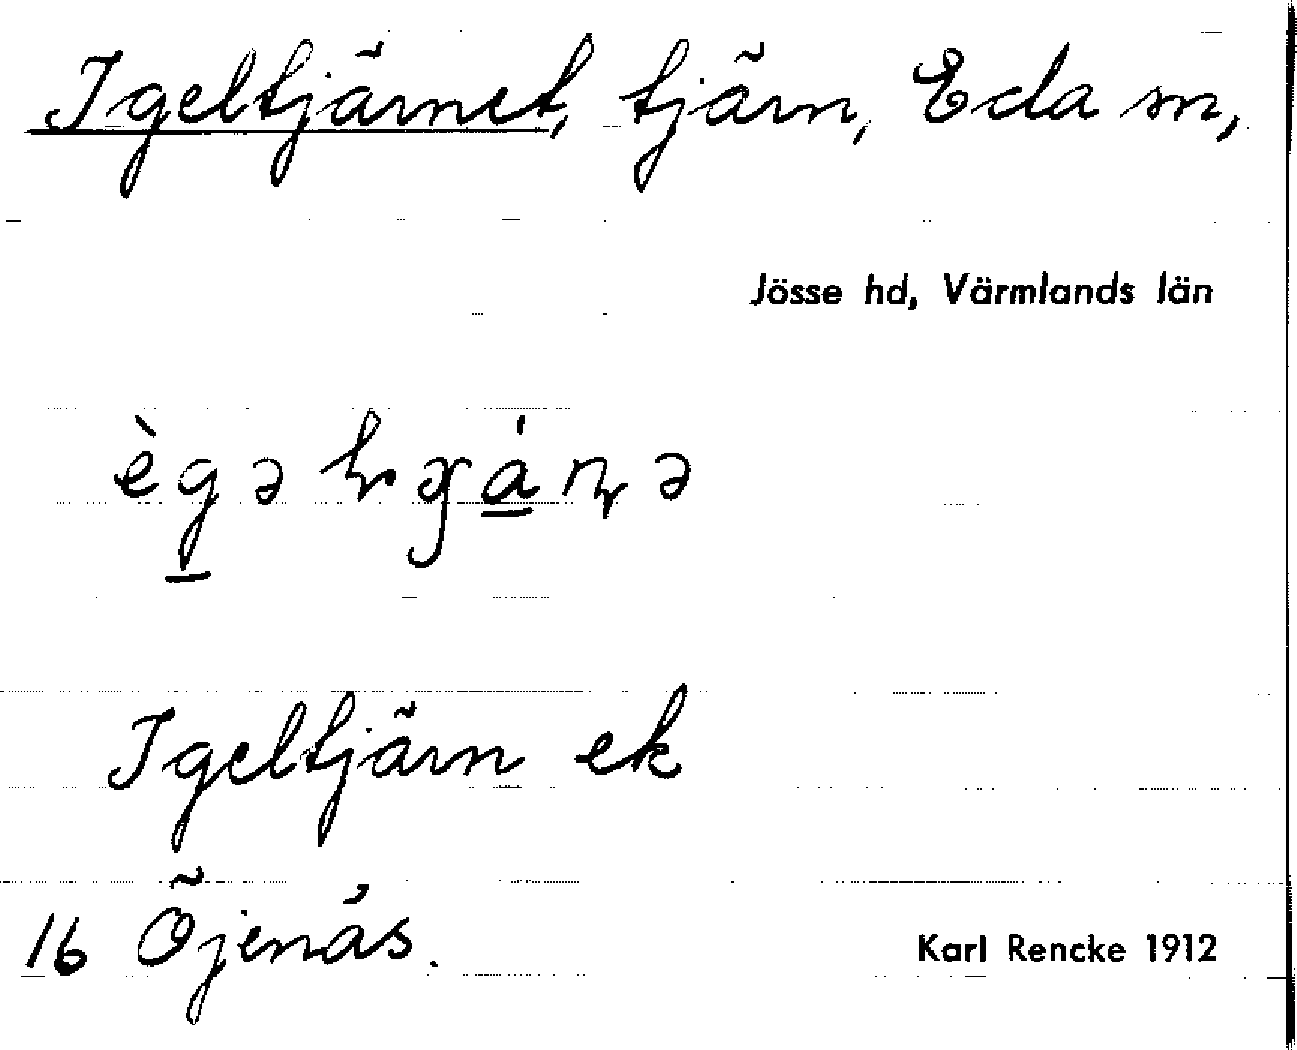 Igeltjärnet, tjärn, Eda sn,
Jösse hd, Värmlands län
Igeltjärn ek
16 Öjenäs.
Karl Rencke 1912